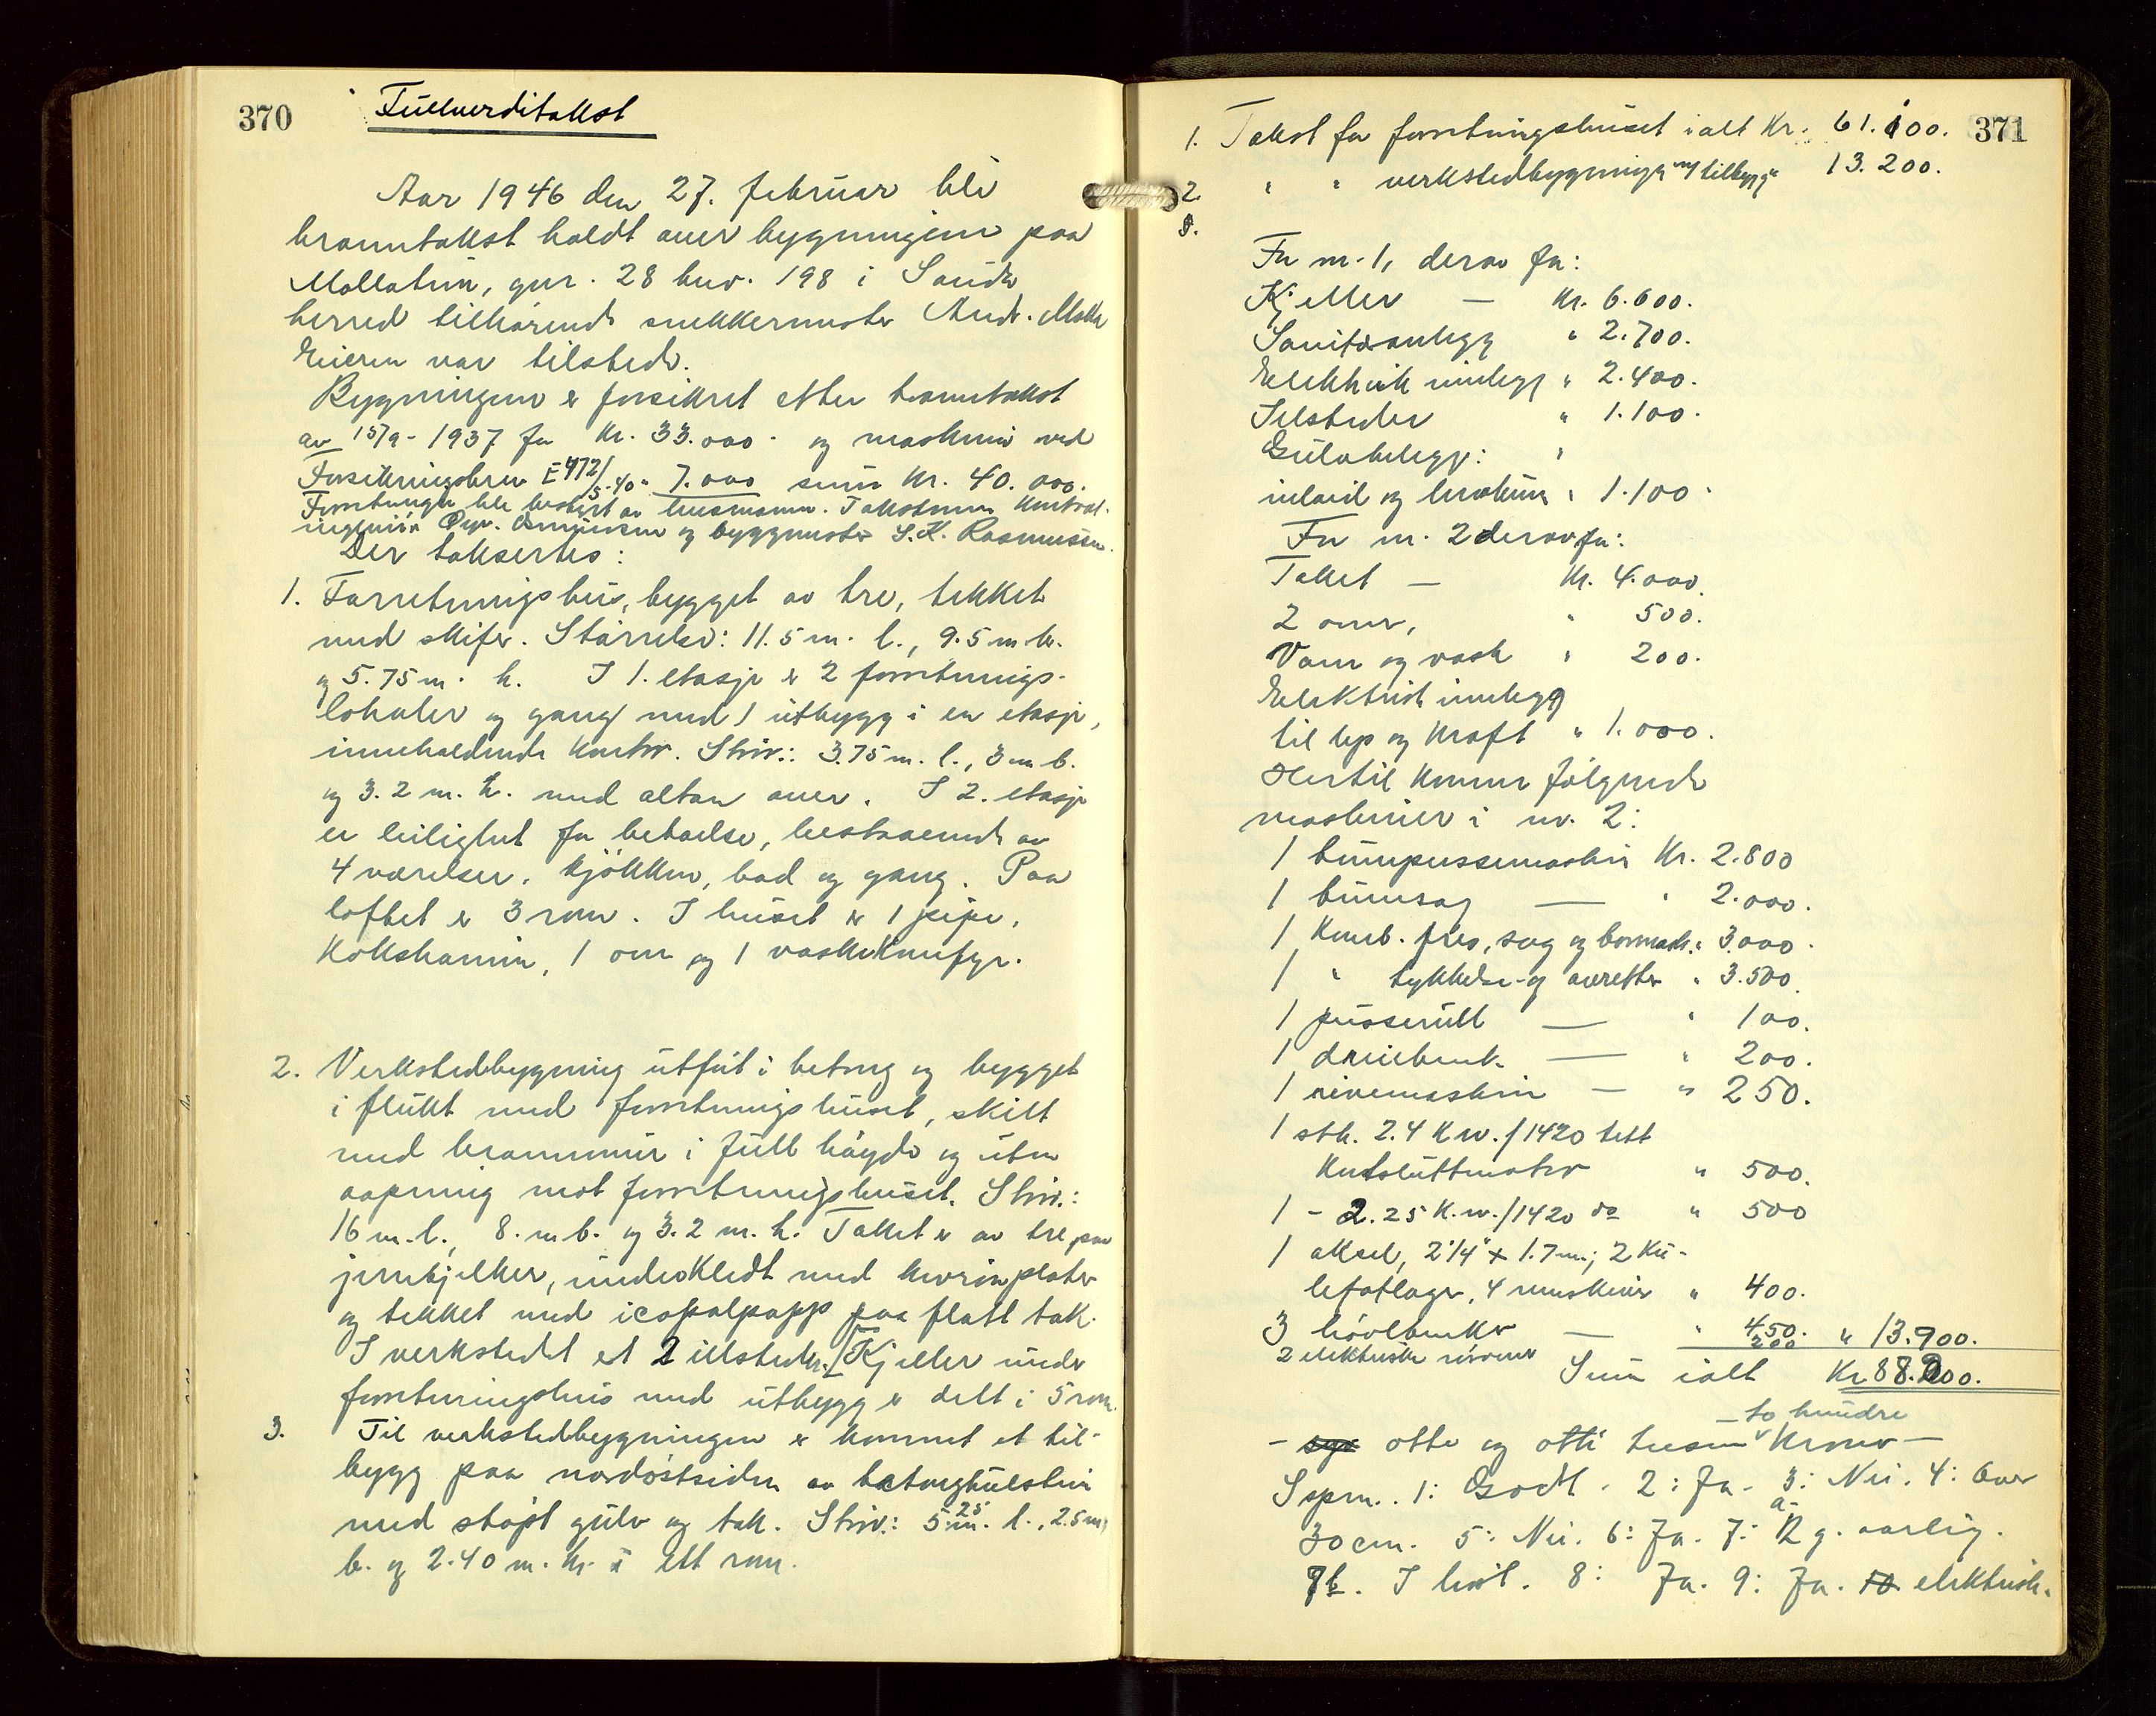 370 Fullverditakst
Aar 1946 den 27. februar ble
branntakst holdt over bygningene paa
Mollatun, gnr. 28 bnr. 198 i Sauda
herred tilhørende snekkermester Andr. Molla
Eieren var tilstede.
Bygningene er forsikret etter branntakst
av 15/9-1937 for Kr. 33.000.- og maskiner ved
Forsikringsbrev E 472/5-40 " 7.000 sum Kr. 40.000.
Forretningen ble bestyrt av lensmannen. Takstmenn kontrol-
ingeniør og byggmester S. K. Rasmussen.
Der takserteș:
1. Forretningshus, bygget av tre, tekket
med skifer. Størrelse: 11.5 m. l., 9.5 m b.
og 5.75 m. h. I 1. etasje er 2 forretnings-
lokaler og gang med 1 utbygg i en etasje,
inneholdende kontor. Størr.: 3.75 m. l., 3 m b.
og 3.2 m. h. med altan over. I 2. etasje
er leilighet for beboelse, bestaaende av
4 værelser, kjøkken, bad og gang. Paa
loftet er 3 rom. I huset er 1 pipe,
kokskamin, 1 ovn og 1 vaskekumfyr.
2. Verkstedbygning utført i betong og bygget
i flukt med forretningshuset, skilt
med brannmur i full høyde og uten
aapning mot forretningshuset. Størr.:
16 m. l., 8. m b. og 3.2 m. h. Taket er av tre paa
jernbjelker, underkledt med plater
og tekket med icopalpapp paa flatt tak.
I verkstedet et 2 ildsteder. [Kjeller under
forretningshus med utbygg er delt i 5 rom.
3. Til verkstedbygningen er kommet et til-
bygg paa nordøstsiden av betonghulstein
med støpt gulv og tak. Størr.: 5.25 m. l., 2.5 m
b. og 2.40 m. h. i ett rom.
371
1. Takst for forretningshuset i alt Kr. 61.100.
2. " " verkstedbygningen m/ tilbygg " 13.200.
3.
For nr. 1, derav for:
Kjeller — Kr. 6.600.
Sanitæranlegg " 2.700.
Elektrisk innlegg " 2.400.
Ildsteder " 1.100.
Gulvbelegg: "
inlaid og linoleum " 1.100.
For nr. 2 derav for:
Taket — Kr. 4.000.
2 ovner, " 500.
Vann og vask " 200.
Elektrisk innlegg
til lys og kraft " 1.000.
Hertil kommer følgende
maskiner i nr. 2:
1 båndpussemaskin Kr. 2.800
1 båndsag — " 2.000.
1 komb. fres, sag og bormask. " 3.000.
1 " tykkelse- og avretter " 3.500.
1 pusserull — " 100.
1 dreiebenk — " 200.
1 rivemaskin — " 250.
1 stk. 2.4 Kw./1420 tett
kortsluttmotor " 500.
1 - 2.25 K.w./1420 do " 500
1 aksel, 2 1/4" x 1.7 m; 2 ku-
lefotlager, 4 remskiver " 400.
3 høvlbenker — " 450. " 13.900.
2 elektriske " 200
Sum ialt Kr 88.200.
— to hundre
- syv otte og otti tusen Kroner —
Spm. 1: Godt. 2: Ja. 3: Nei. 4: Over
30 cm. 5: Nei. 6: Ja. 7: a- 2 g. aarlig.
7b. I hvit. 8: Ja. 9: Ja. 10. elektrisk.